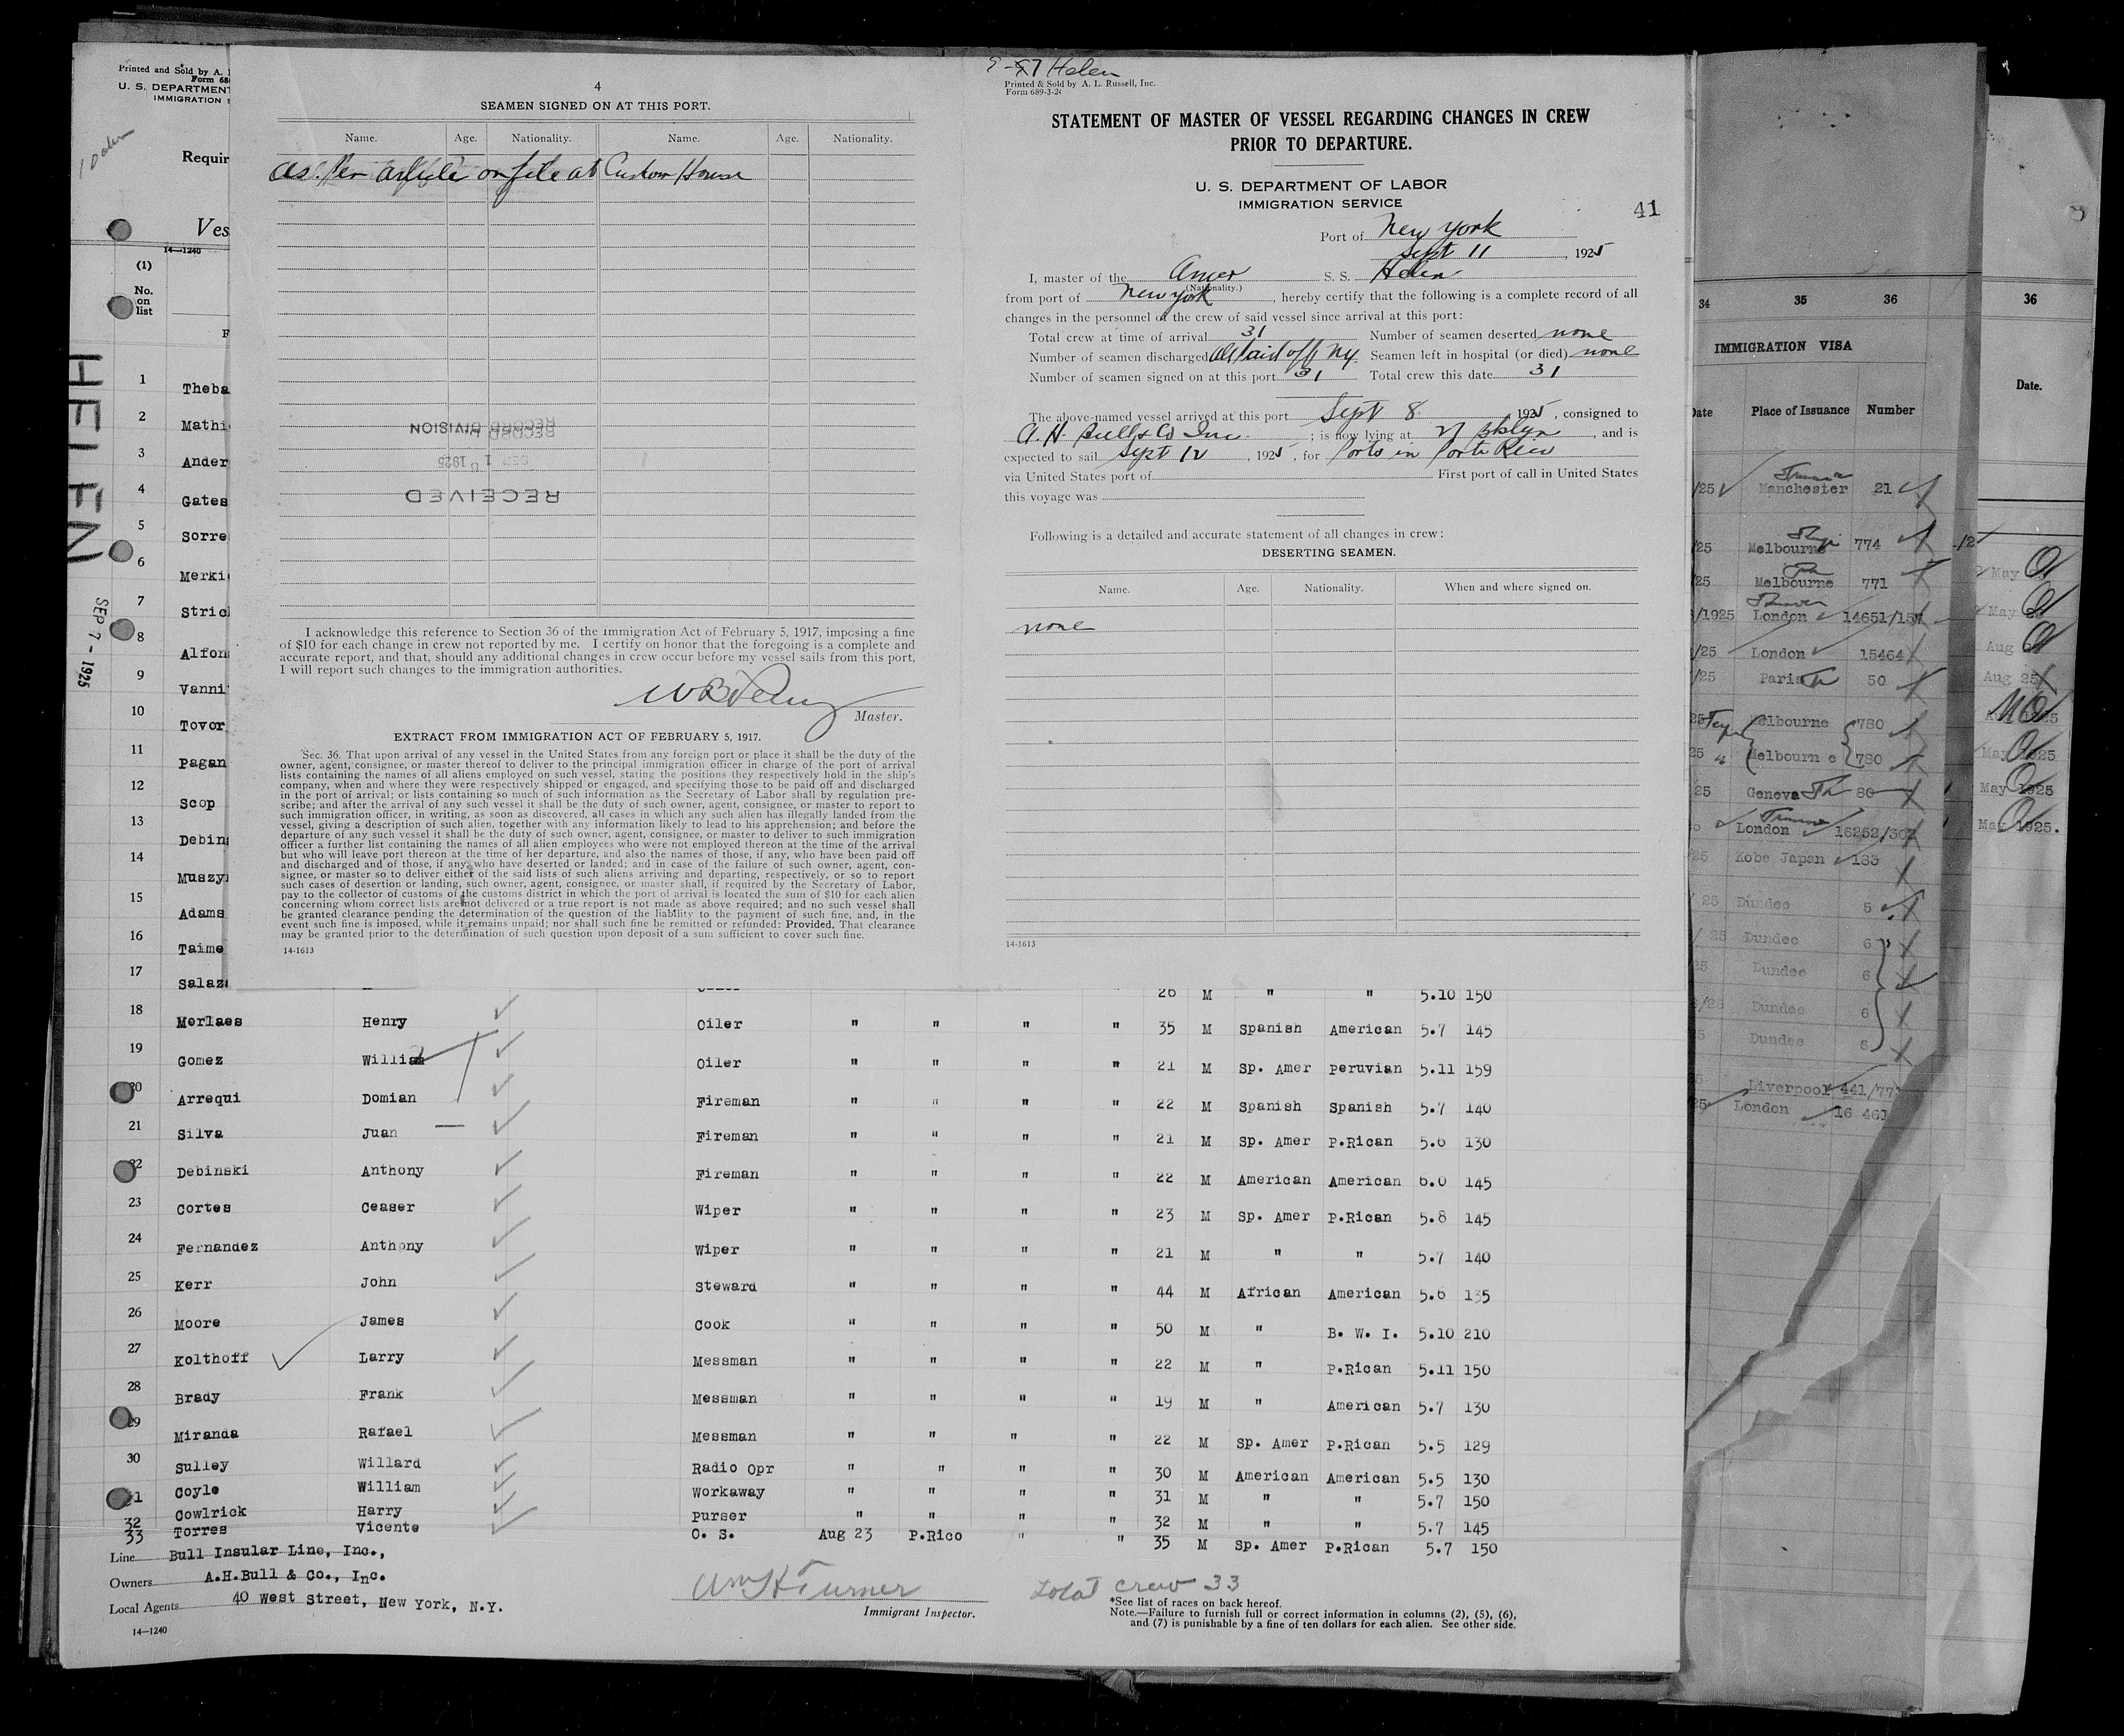 Printed and Sold by A.
Form 68
U. S. DEPARTMENT
IMMIGRATION S
Requir
Ves
14—1240
(1)
No.
on
list
HELEN
SEP 7 - 1925
1 Theba
2 Mathi
3 Ander
4 Gates
5 Sorre
6 Merki
7 Stric
8 Alfon
9 Vanni
10 Tovor
11 Pagan
12 Scop
13 Debin
14 Muszy
15 Adams
16 Taime
17 Salaz
4
SEAMEN SIGNED ON AT THIS PORT.
Name. Age. Nationality. Name. Age. Nationality.
as per article on file at Custom House
RECORD DIVISION
SEP 16 1925
RECEIVED
I acknowledge this reference to Section 36 of the Immigration Act of February 5, 1917, imposing a fine
of $10 for each change in crew not reported by me. I certify on honor that the foregoing is a complete and
accurate report, and that, should any additional changes in crew occur before my vessel sails from this port,
I will report such changes to the immigration authorities.
Master.
EXTRACT FROM IMMIGRATION ACT OF FEBRUARY 5, 1917.
Sec. 36. That upon arrival of any vessel in the United States from any foreign port or place it shall be the duty of the
owner, agent, consignee, or master thereof to deliver to the principal immigration officer in charge of the port of arrival
lists containing the names of all aliens employed on such vessel, stating the positions they respectively hold in the ship's
company, when and where they were respectively shipped or engaged, and specifying those to be paid off and discharged
in the port of arrival; or lists containing so much of such information as the Secretary of Labor shall by regulation pre-
scribe; and after the arrival of any such vessel it shall be the duty of such owner, agent, consignee, or master to report to
such immigration officer, in writing, as soon as discovered, all cases in which any such alien has illegally landed from the
vessel, giving a description of such alien, together with any information likely to lead to his apprehension; and before the
departure of any such vessel it shall be the duty of such owner, agent, consignee, or master to deliver to such immigration
officer a further list containing the names of all alien employees who were not employed thereon at the time of the arrival
but who will leave port thereon at the time of her departure, and also the names of those, if any, who have been paid off
and discharged and of those, if any, who have deserted or landed; and in case of the failure of such owner, agent, con-
signee, or master so to deliver either of the said lists of such aliens arriving and departing, respectively, or so to report
such cases of desertion or landing, such owner, agent, consignee, or master shall, if required by the Secretary of Labor,
pay to the collector of customs of the customs district in which the port of arrival is located the sum of $10 for each alien
concerning whom correct lists are not delivered or a true report is not made as above required; and no such vessel shall
be granted clearance pending the determination of the question of the liability to the payment of such fine, and, in the
event such fine is imposed, while it remains unpaid; nor shall such fine be remitted or refunded: Provided, That clearance
may be granted prior to the determination of such question upon deposit of a sum sufficient to cover such fine.
14-1613
Helen
Printed & Sold by A. L. Russell, Inc.
Form 689-3-24
STATEMENT OF MASTER OF VESSEL REGARDING CHANGES IN CREW
PRIOR TO DEPARTURE.
U. S. DEPARTMENT OF LABOR
IMMIGRATION SERVICE
41
Port of New York
Sept 11, 1925
I, master of the Amer S. S. Helen
(Nationality.)
from port of New York, hereby certify that the following is a complete record of all
changes in the personnel of the crew of said vessel since arrival at this port:
Total crew at time of arrival 31 Number of seamen deserted none
Number of seamen discharged All paid off NY. Seamen left in hospital (or died) none
Number of seamen signed on at this port 31 Total crew this date 31
The above-named vessel arrived at this port Sept 8 1925, consigned to
A. H. Bull & Co Inc.; is now lying at 27 Bklyn, and is
expected to sail Sept 12, 1925, for Ports in Porto Rico
via United States port of First port of call in United States
this voyage was
Following is a detailed and accurate statement of all changes in crew:
DESERTING SEAMEN.
Name. Age. Nationality. When and where signed on.
none
14-1613
26 M " " 5.10 150
18 Morlaes Henry Oiler " " " " 35 M Spanish American 5.7 145
19 Gomez William Oiler " " " " 21 M Sp. Amer Peruvian 5.11 159
20 Arrequi Domian Fireman " " " " 22 M Spanish Spanish 5.7 140
21 Silva Juan Fireman " " " " 21 M Sp. Amer P.Rican 5.6 130
22 Debinski Anthony Fireman " " " " 22 M American American 6.0 145
23 Cortes Ceaser Wiper " " " " 23 M Sp. Amer P.Rican 5.8 145
24 Fernandez Anthony Wiper " " " " 21 M " " 5.7 140
25 Kerr John Steward " " " " 44 M African American 5.6 135
26 Moore James Cook " " " " 50 M " B. W. I. 5.10 210
27 Kolthoff Larry Messman " " " " 22 M " P.Rican 5.11 150
28 Brady Frank Messman " " " " 19 M " American 5.7 130
29 Miranda Rafael Messman " " " " 22 M Sp. Amer P.Rican 5.5 129
30 Sulley Willard Radio Opr " " " " 30 M American American 5.5 130
31 Coyle William Workaway " " " " 31 M " " 5.7 150
32 Cowlrick Harry Purser " " " " 32 M " " 5.7 145
33 Torres Vicente O. S. Aug 23 P.Rico " " 35 M Sp. Amer P.Rican 5.7 150
Line Bull Insular Line, Inc.,
Owners A.H.Bull & Co., Inc.
Local Agents 40 West Street, New York, N.Y.
14—1240
Wm H Turner
Immigrant Inspector.
Total crew 33
*See list of races on back hereof.
Note.—Failure to furnish full or correct information in columns (2), (5), (6),
and (7) is punishable by a fine of ten dollars for each alien. See other side.
34 35 36
IMMIGRATION VISA
Date Place of Issuance Number
/25 Manchester 21
/25 Melbourne 774
/25 Melbourne 771
/1925 London 14651/157
/25 London 15464
/25 Paris 50
25 Melbourne 780
25 Melbourne 780
25 Geneva 80
London 16252/302
/25 Kobe Japan 183
/ 25 Dundee 5
/ 25 Dundee 6
25 Dundee 6
/25 Dundee 6
5 Dundee 6
Liverpool 441/77
25 London 16 461
36
Date.
May
May 25
Aug
Aug 25
May 1925
May 1925
May 1925.